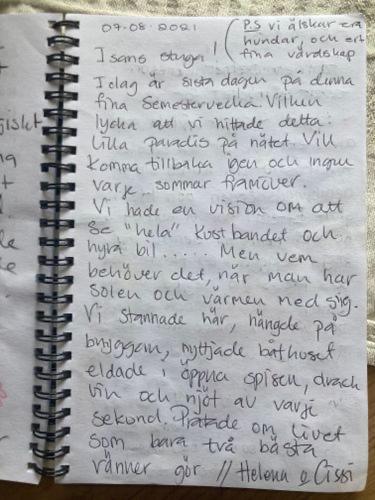 07.08.2021
PS vi älskar era
hundar, och ert
fina värdskap
I sans stuga!
Idag är sista dagen på denna
fina Semestervecka. Vilken
lycka att vi hittade detta
lilla paradis på nätet. Vill
komma tillbaka igen och ingen
varje sommar framöver.
Vi hade en vision om att
se "hela" Kustbandet och
hyra bil..... Men vem
behöver det, när man har
solen och värmen med sig.
Vi stannade här, hängde på
bryggan, nyttjade båthuset
eldade i öppna spisen, drack
vin och njöt av varje
sekund. Pratade om livet
som bara två bästa
vänner gör // Helena & Cissi